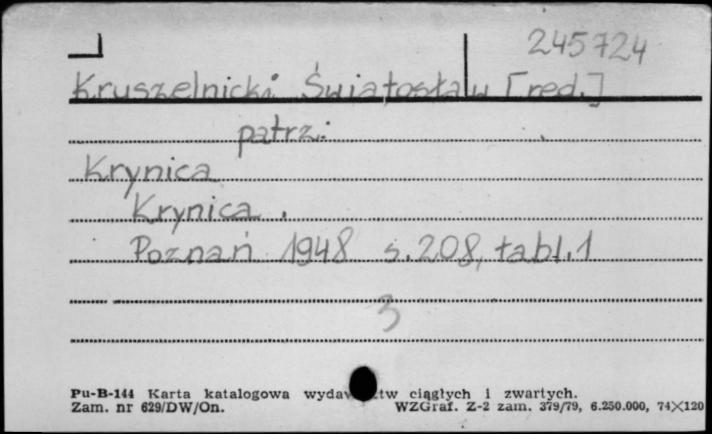 245724
Kruszelnicki Światosław [red.]
patrz:
Krynica
Krynica.
Poznań 1948 s. 208, tabl. 1
3
Pu-B-144 Karta katalogowa ciągłych i zwartych.
Zam. nr 629/DW/On. WZGraf. Z-2 zam. 379/79, 6.250.000, 74×120